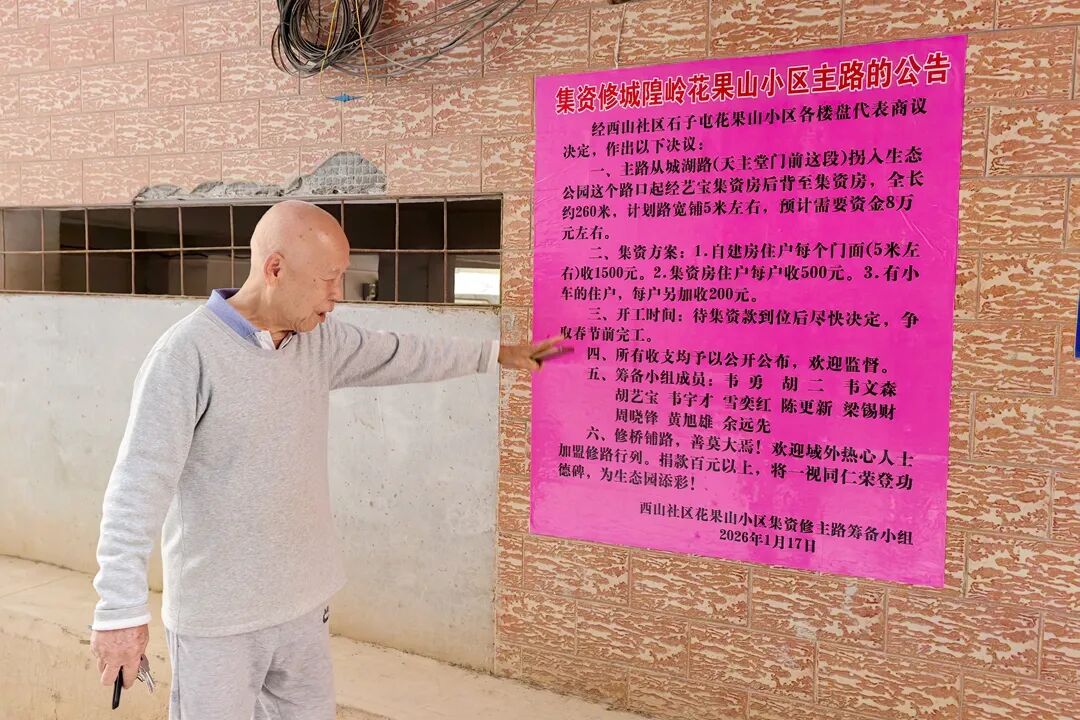 集资修城隍岭花果山小区主路的公告
经西山社区石子屯花果山小区各楼盘代表商议
决定，作出以下决议：
一、主路从城湖路(天主堂门前这段)拐入生态
公园这个路口起经艺宝集资房后背至集资房，全长
约260米，计划路宽铺5米左右，预计需要资金8万
元左右。
二、集资方案：1.自建房住户每个门面(5米左
右)收1500元。2.集资房住户每户收500元。3.有小
车的住户，每户另加收200元。
三、开工时间：待集资款到位后尽快决定，争
取春节前完工。
四、所有收支均予以公开公布，欢迎监督。
五、筹备小组成员：韦 勇 胡 二 韦文森
胡艺宝 韦宇才 雪奕红 陈更新 梁锡财
周晓锋 黄旭雄 余远先
六、修桥铺路，善莫大焉！欢迎域外热心人士
加盟修路行列。捐款百元以上，将一视同仁荣登功
德碑，为生态园添彩！
西山社区花果山小区集资修主路筹备小组
2026年1月17日